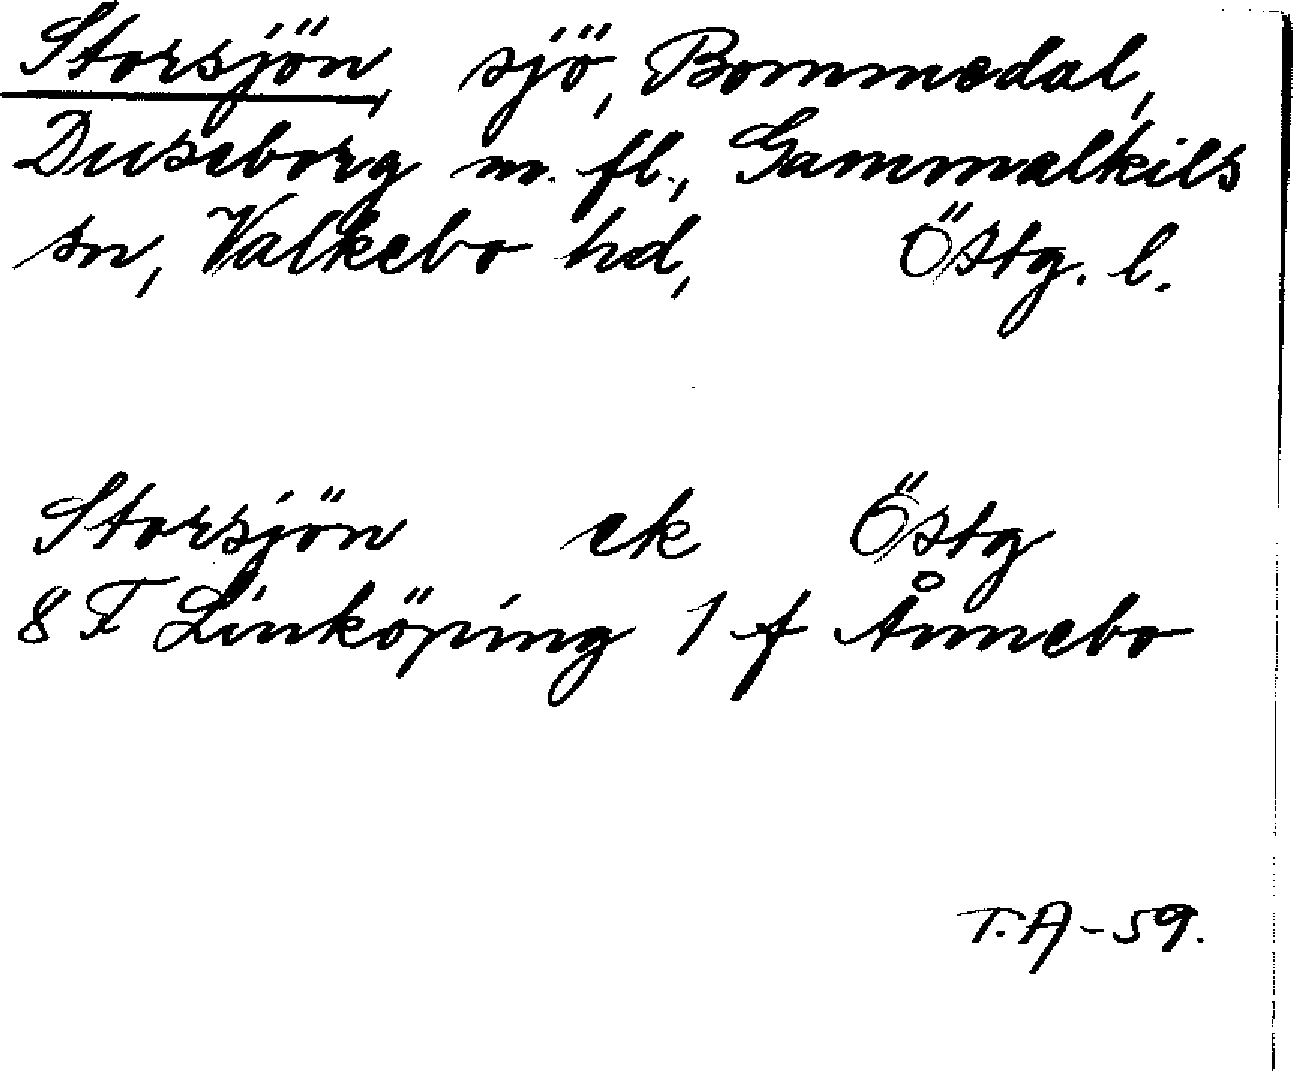 Storsjön, sjö, Bommedal,
Duseborg m. fl., Gammalkils
sn, Valkebo hd, Östg. l.
Storsjön ek Östg
8 F Linköping 1 f Ånnebo
T. A - 59.